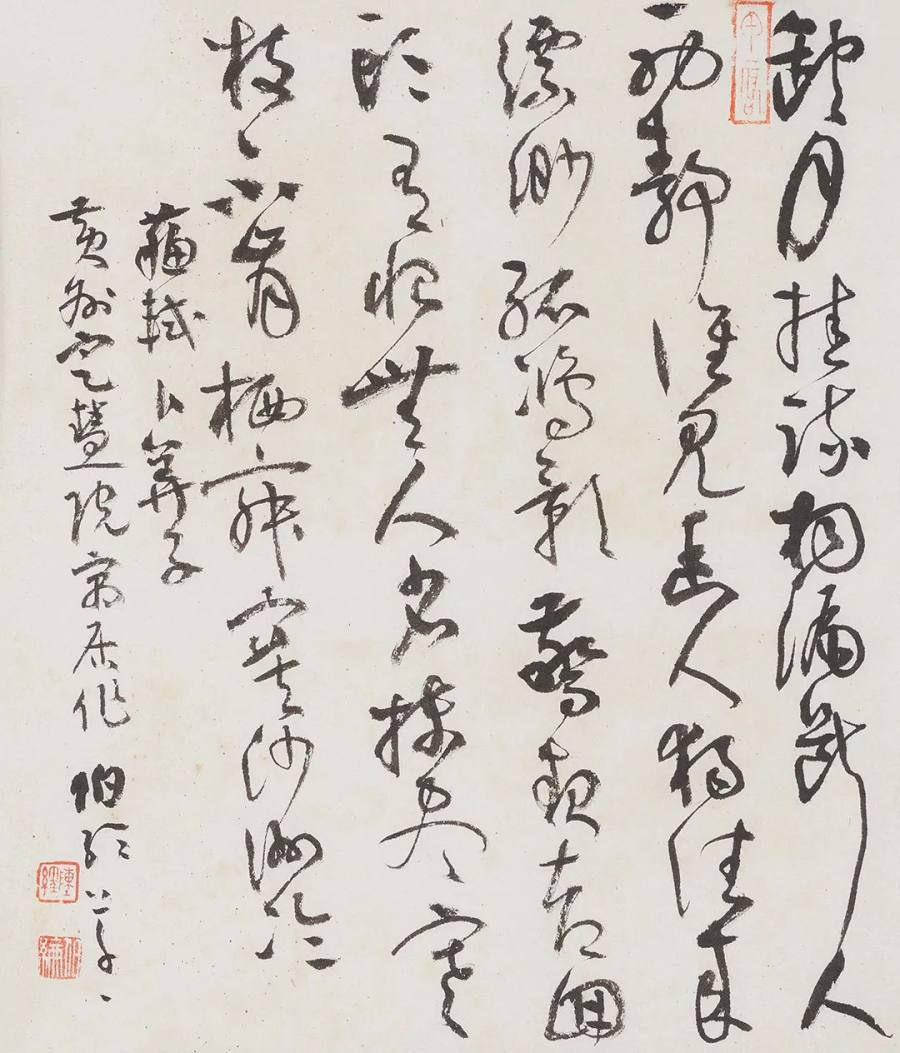 缺月挂疏桐漏斷人
初靜誰見幽人獨往來
縹緲孤鴻影驚起却囬
頭有恨無人省揀盡寒
枝不肯栖寂寞沙洲冷
蘇軾卜算子
黃州定慧院寓居作 伯